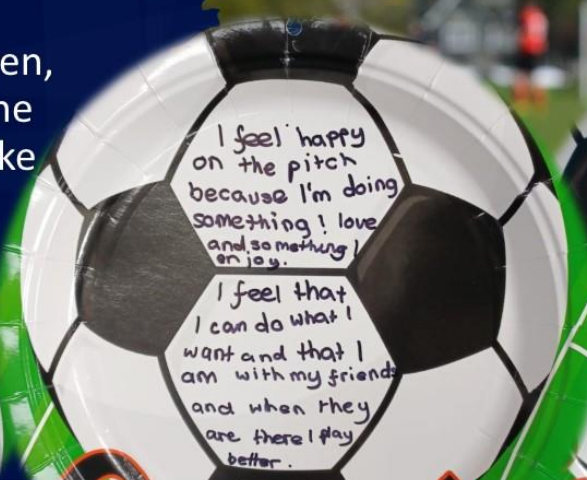 en,
ne
ke
I feel happy
on the pitch
because I'm doing
something I love
and something I
enjoy.
I feel that
I can do what I
want and that I
am with my friends
and when they
are there I play
better.